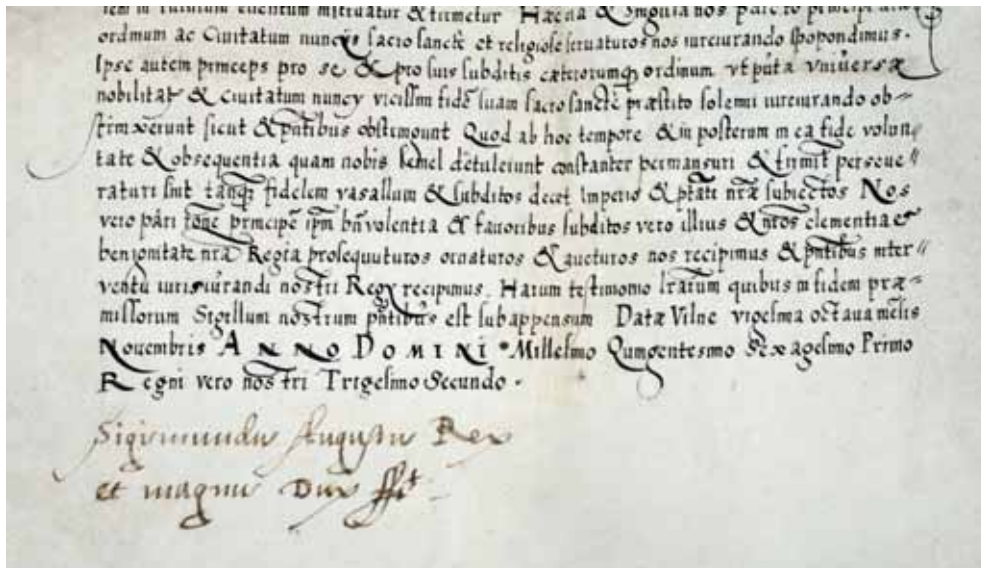 futurum euentum mittuatur & firmetur Haec oia & singula nos pare
ordinum ac Ciuitatum nuncijs sacrosancte et religiose seruaturos nos iureiurando spopondimus.
Ipse autem princeps pro se & pro suis subditis caeterorumq, ordinum vt puta vniuersae
nobilitat & ciuitatum nuncij vicissim fide suam sacrosancte praestito solemni iureiurando ob-
strinxerunt sicut & pntibus obstringunt Quod ab hoc tempore & in posterum in ea fide volun
tate & obsequentia quam nobis semel detulerunt constanter permansuri & firmit perseue
raturi sint tanq, fidelem vasallum & subditos decet Imperio & ptati nrae subiectos Nos
vero pari rone principe ipm bnvolentia & fauoribus subditos vero illius & nros clementia et
benignitate nra Regia prosequuturos ornaturos & aucturos nos recipimus & pntibus inter
ventu iurisiurandi nostri Regij recipimus. Harum testimonio lrarum quibus in fidem prae
missorum Sigillum nostrum pntibus est subappensum Datae Vilne vigesima octaua mesis
Nouembris ANNO DOMINI Millesimo Quingentesimo Sexagesimo Primo
Regni vero nostri Trigesimo Secundo.
Sigismundus Augustus Rex
et magnus Dux sst